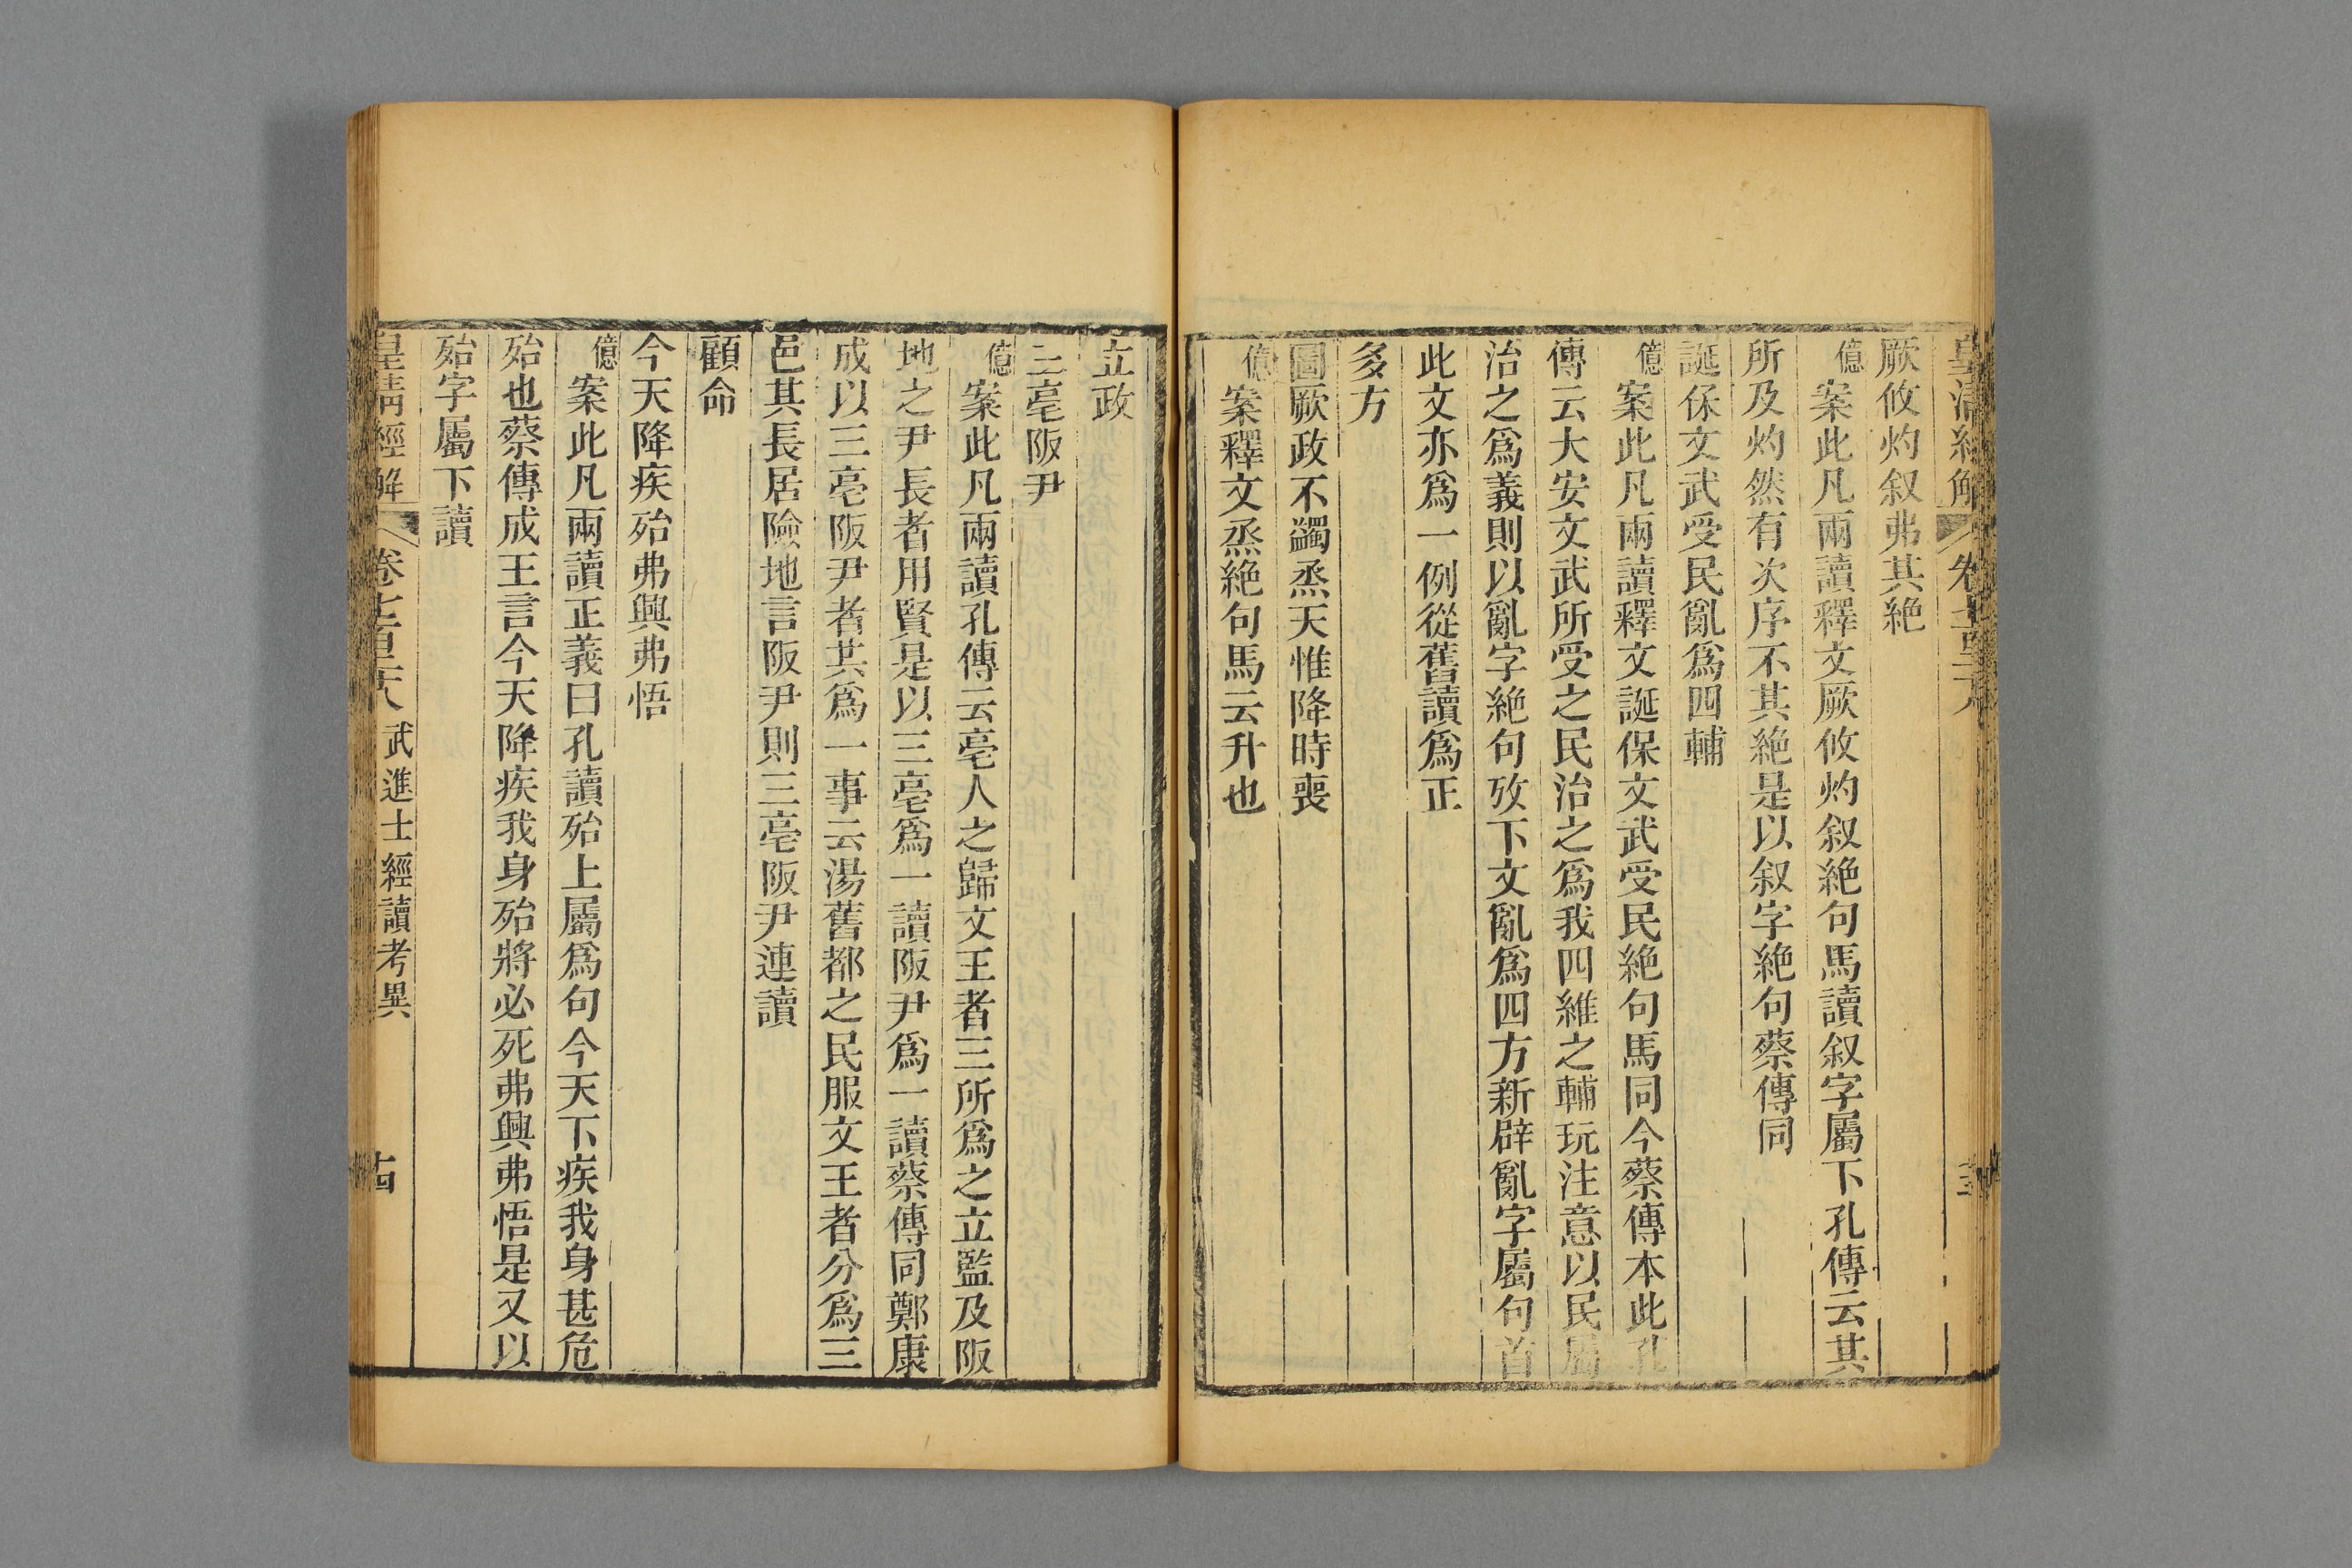 厥攸灼叙弗其絶
億案此凡兩讀釋文厥攸灼叙絶句馬讀叙字屬下孔傳云其
所及灼然有次序不其絶是以叙字絶句蔡傳同
誕保文武受民亂爲四輔
億案此凡兩讀釋文誕保文武受民絶句馬同今蔡傳本此孔
傳云大安文武所受之民治之爲我四維之輔玩注意以民屬
治之爲義則以亂字絶句攷下文亂爲四方新辟亂字屬句首
此文亦爲一例從舊讀爲正
多方
圖厥政不蠲烝天惟降時喪
億案釋文烝絶句馬云升也
立政
三亳阪尹
億案此凡兩讀孔傳云亳人之歸文王者三所爲之立監及阪
地之尹長者用賢是以三亳爲一讀阪尹爲一讀蔡傳同鄭康
成以三亳阪尹者共爲一事云湯舊都之民服文王者分爲三
邑其長居險地言阪尹則三亳阪尹連讀
顧命
今天降疾殆弗興弗悟
億案此凡兩讀正義曰孔讀殆上屬爲句今天下疾我身甚危
殆也蔡傳成王言今天降疾我身殆將必死弗興弗悟是又以
殆字屬下讀
皇清經解 武進士經讀考異 十四